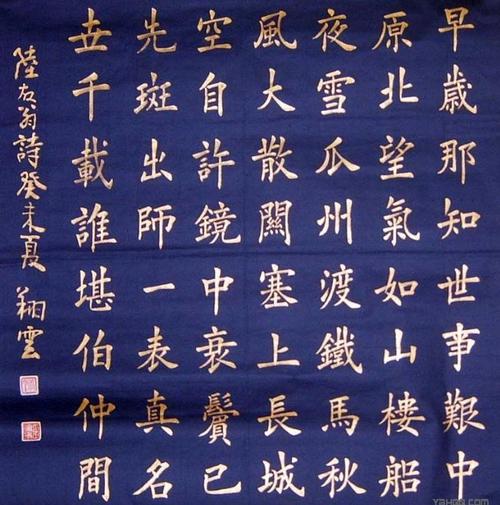 早歲那知世事艱中
原北望氣如山樓船
夜雪瓜州渡鐵馬秋
風大散關塞上長城
空自許鏡中衰鬢已
先斑出師一表真名
世千載誰堪伯仲間
陸放翁詩癸未夏 翔雲